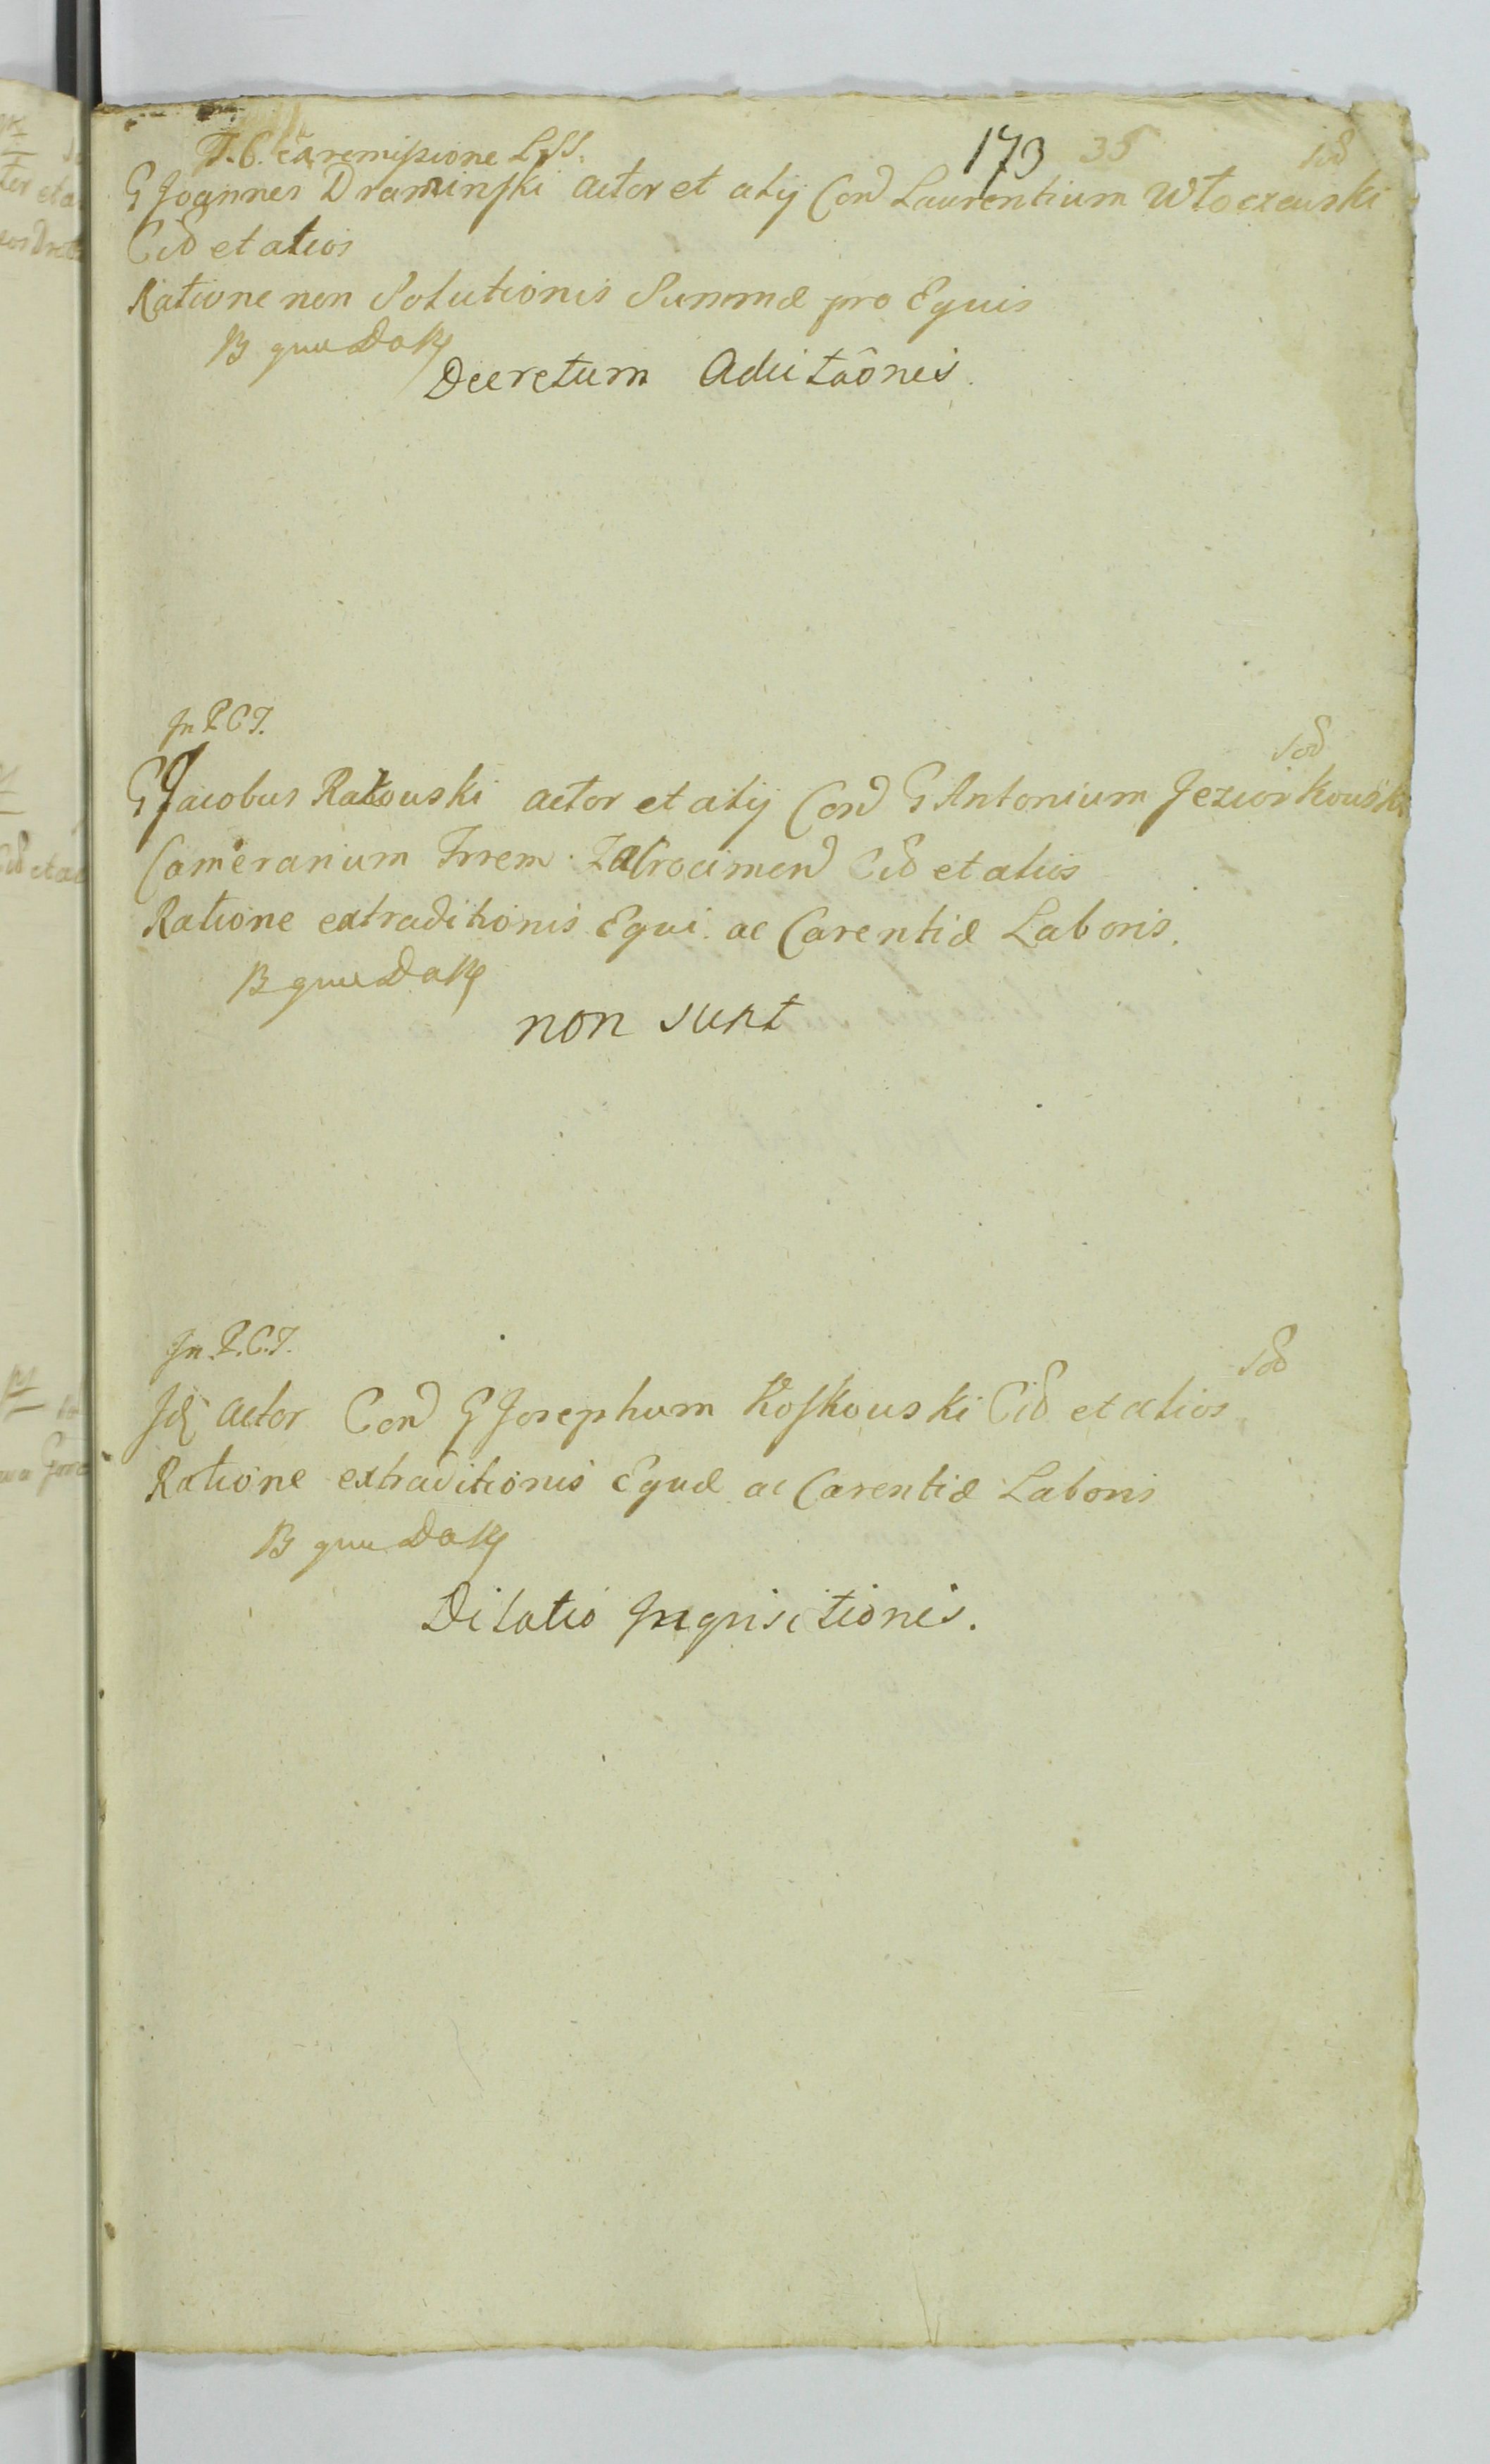 173 35
T. C. ex remissione L SS. Sod
G Joannes Draminski actor et alij Con̄d Laurentium Włoczewski
Cid et alios
Ratione non Solutionis Summæ pro Equis
Decretum Aducitaônis.
In P C T.
Sod
G Jacobus Rakouski actor et alij Con̄d G Antonium Jeziorkouski
Camerarium Trrem Zakrocimen̄ Cid et alios
Ratione extraditionis Equi ac Carentiæ Laboris.
non sunt
In. P. C. T.
Sod
Id actor Con̄d G Josephum Koskouski Cid et alios
Ratione extraditionis Equæ ac Carentiæ Laboris
Dilatio Inquisitionis.